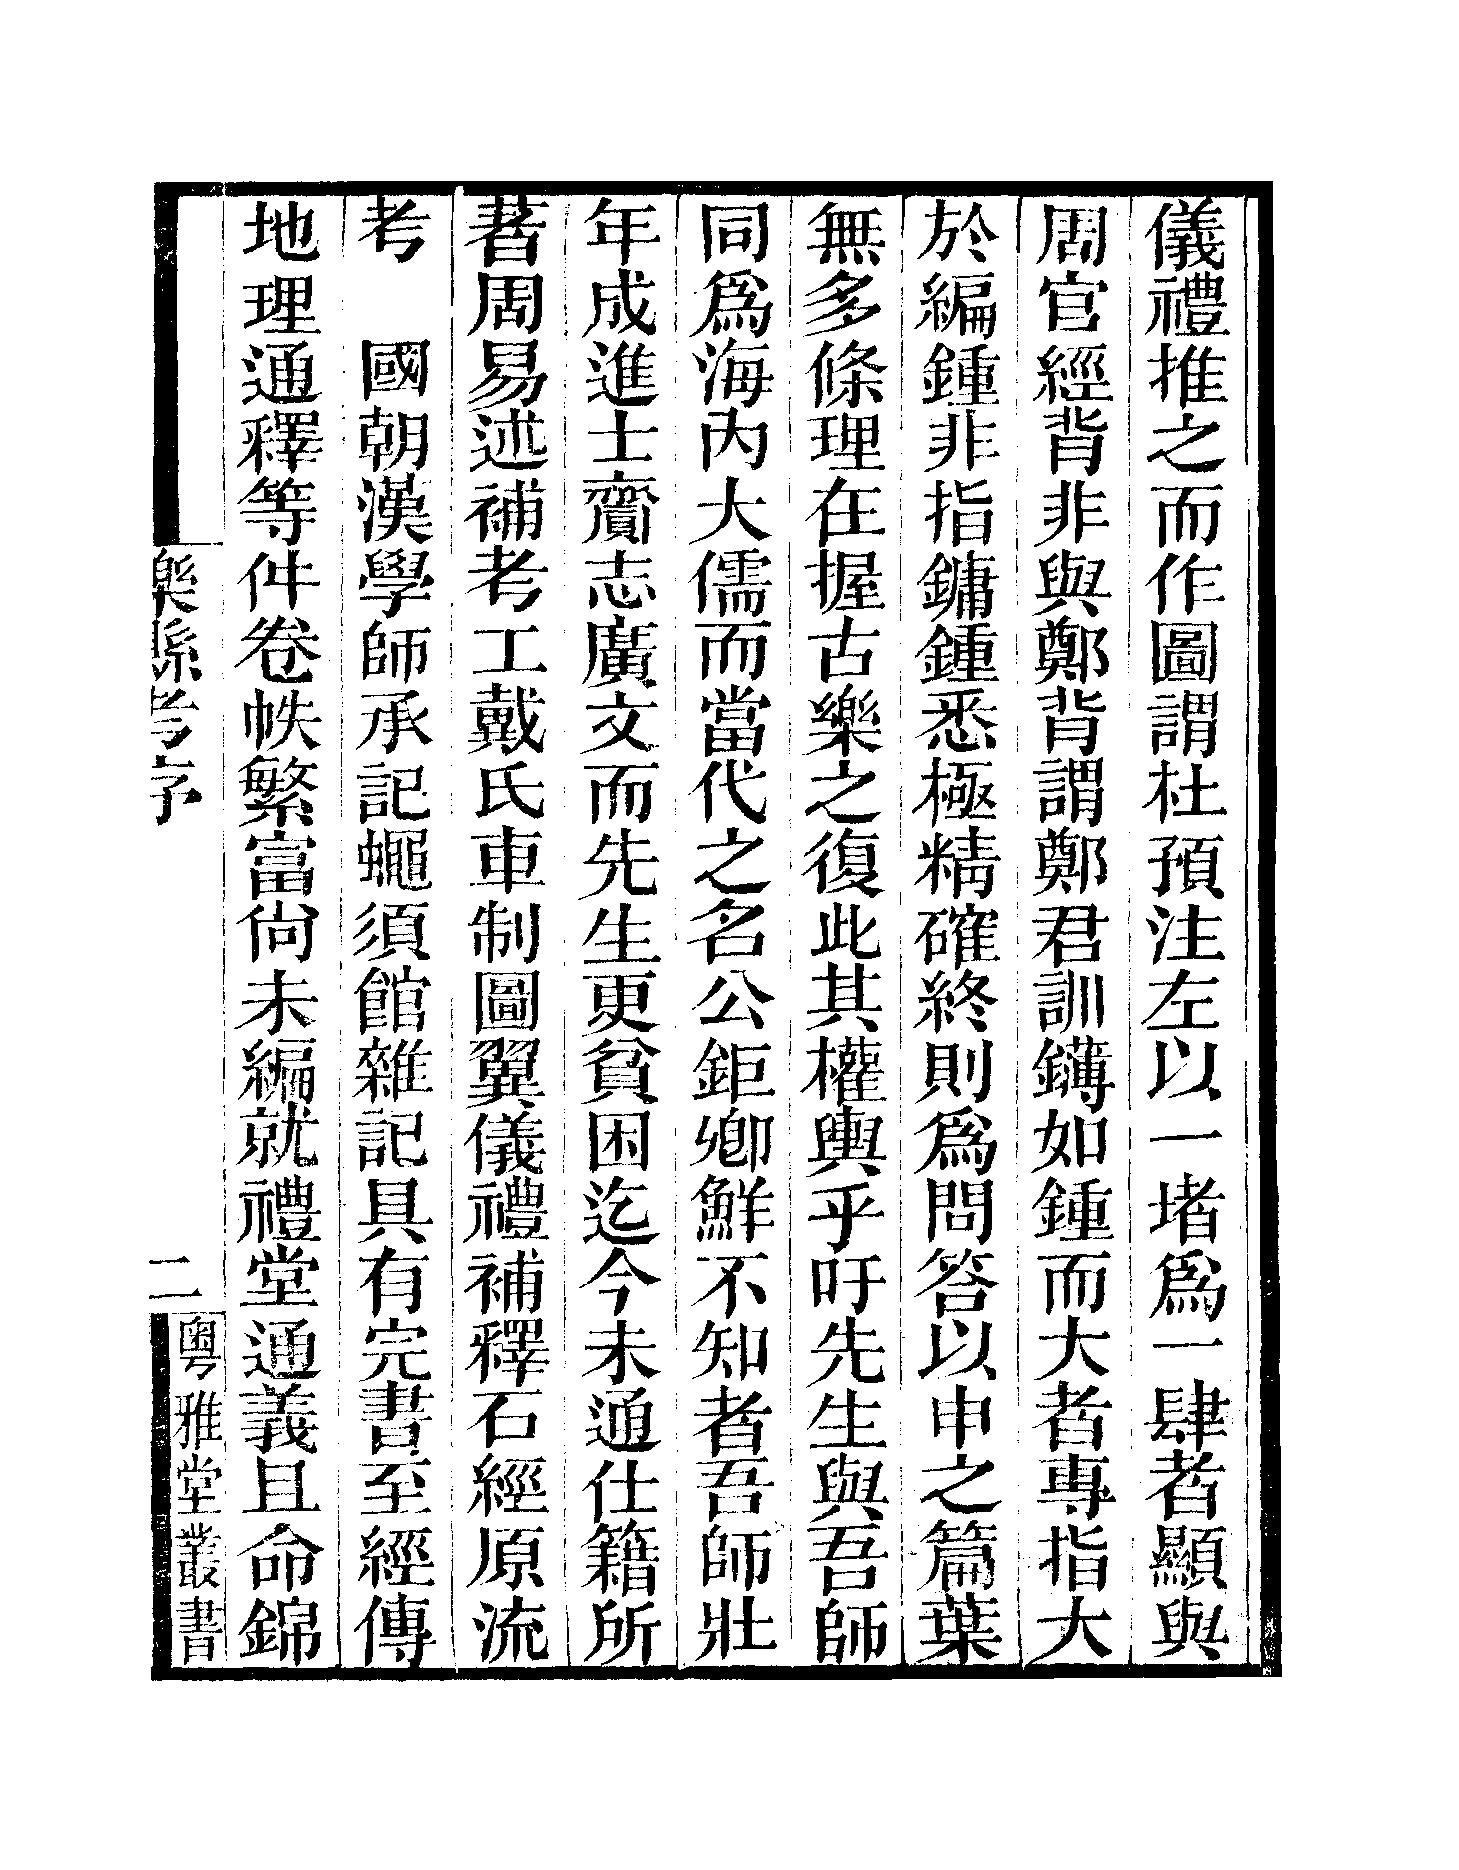 儀禮推之而作圖謂杜預注左以一堵爲一肆者顯與
周官經背非與鄭背謂鄭君訓鑮如鍾而大者專指大
於編鍾非指鏞鍾悉極精確終則爲問答以申之篇葉
無多條理在握古樂之復此其權輿乎吁先生與吾師
同爲海內大儒而當代之名公鉅卿鮮不知者吾師壯
年成進士齎志廣文而先生更貧困迄今未通仕籍所
著周易述補考工戴氏車制圖翼儀禮補釋石經原流
考　國朝漢學師承記蠅須館雜記具有完書至經傳
地理通釋等件卷帙繁富尙未編就禮堂通義且命錦
樂縣考序
二
粵雅堂叢書